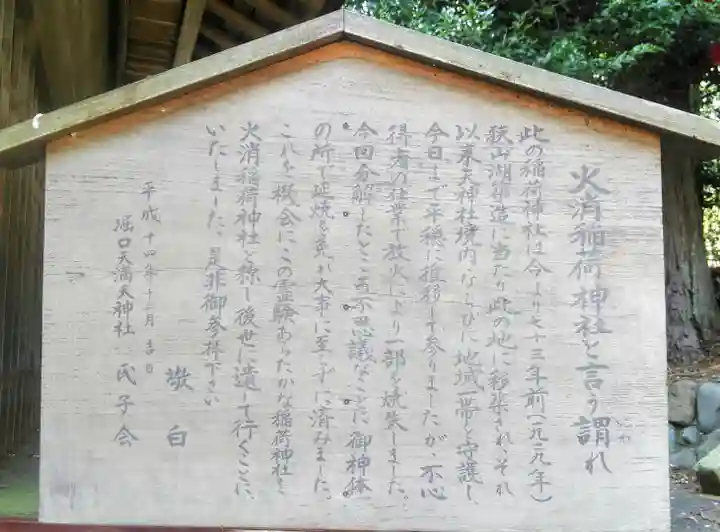 火消稲荷神社と言う謂れ
いわ
此の稲荷神社は今より七十三年前(一九二九年)
狭山湖築造に当たり此の地に移築され、それ
以来天神社境内、ならびに地域一帯を守護し
今日まで平穏に推移して参りましたが、不心
得者の仕業で放火により一部を焼失しました。
今回分解したところ不思議なことに御神体
の所で延焼を免れ大事に至らずに済みました。
これを機会にこの霊験あらたかな稲荷神社を
火消稲荷神社と称し後世に遺して行くことに
いたしました、是非御参拝下さい
敬白
平成十四年十一月吉日
堀口天満天神社 氏子会